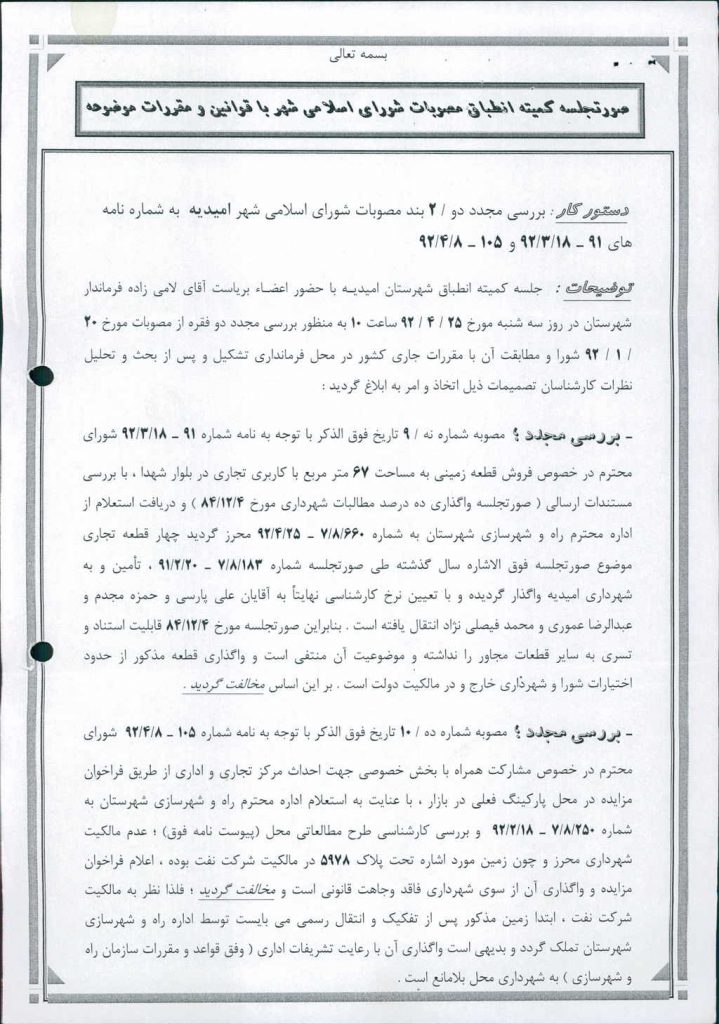 بسمه تعالی
صورتجلسه کمیته انطباق مصوبات شورای اسلامی شهر با قوانین و مقررات موضوعه
دستور کار : بررسی مجدد دو / ۲ بند مصوبات شورای اسلامی شهر امیدیه به شماره نامه
های ۹۱ – ۹۲/۳/۱۸ و ۱۰۵ – ۹۲/۴/۸
توضیحات : جلسه کمیته انطباق شهرستان امیدیه با حضور اعضاء بریاست آقای لامی زاده فرماندار
شهرستان در روز سه شنبه مورخ ۲۵ / ۴ / ۹۲ ساعت ۱۰ به منظور بررسی مجدد دو فقره از مصوبات مورخ ۲۰
/ ۱ / ۹۲ شورا و مطابقت آن با مقررات جاری کشور در محل فرمانداری تشکیل و پس از بحث و تحلیل
نظرات کارشناسان تصمیمات ذیل اتخاذ و امر به ابلاغ گردید :
– بررسی مجدد ؛ مصوبه شماره نه / ۹ تاریخ فوق الذکر با توجه به نامه شماره ۹۱ – ۹۲/۳/۱۸ شورای
محترم در خصوص فروش قطعه زمینی به مساحت ۶۷ متر مربع با کاربری تجاری در بلوار شهدا ، با بررسی
مستندات ارسالی ( صورتجلسه واگذاری ده درصد مطالبات شهرداری مورخ ۸۴/۱۲/۴ ) و دریافت استعلام از
اداره محترم راه و شهرسازی شهرستان به شماره ۷/۸/۶۶۰ – ۹۲/۴/۲۵ محرز گردید چهار قطعه تجاری
موضوع صورتجلسه فوق الاشاره سال گذشته طی صورتجلسه شماره ۷/۸/۱۸۳ – ۹۱/۲/۲۰ ، تأمین و به
شهرداری امیدیه واگذار گردیده و با تعیین نرخ کارشناسی نهایتاً به آقایان علی پارسی و حمزه مجدم و
عبدالرضا عموری و محمد فیصلی نژاد انتقال یافته است . بنابراین صورتجلسه مورخ ۸۴/۱۲/۴ قابلیت استناد و
تسری به سایر قطعات مجاور را نداشته و موضوعیت آن منتفی است و واگذاری قطعه مذکور از حدود
اختیارات شورا و شهرداری خارج و در مالکیت دولت است . بر این اساس مخالفت گردید .
– بررسی مجدد ؛ مصوبه شماره ده / ۱۰ تاریخ فوق الذکر با توجه به نامه شماره ۱۰۵ – ۹۲/۴/۸ شورای
محترم در خصوص مشارکت همراه با بخش خصوصی جهت احداث مرکز تجاری و اداری از طریق فراخوان
مزایده در محل پارکینگ فعلی در بازار ، با عنایت به استعلام اداره محترم راه و شهرسازی شهرستان به
شماره ۷/۸/۲۵۰ – ۹۲/۲/۱۸ و بررسی کارشناسی طرح مطالعاتی محل (پیوست نامه فوق) ؛ عدم مالکیت
شهرداری محرز و چون زمین مورد اشاره تحت پلاک ۵۹۷۸ در مالکیت شرکت نفت بوده ، اعلام فراخوان
مزایده و واگذاری آن از سوی شهرداری فاقد وجاهت قانونی است و مخالفت گردید ؛ فلذا نظر به مالکیت
شرکت نفت ، ابتدا زمین مذکور پس از تفکیک و انتقال رسمی می بایست توسط اداره راه و شهرسازی
شهرستان تملک گردد و بدیهی است واگذاری آن با رعایت تشریفات اداری ( وفق قواعد و مقررات سازمان راه
و شهرسازی ) به شهرداری محل بلامانع است .